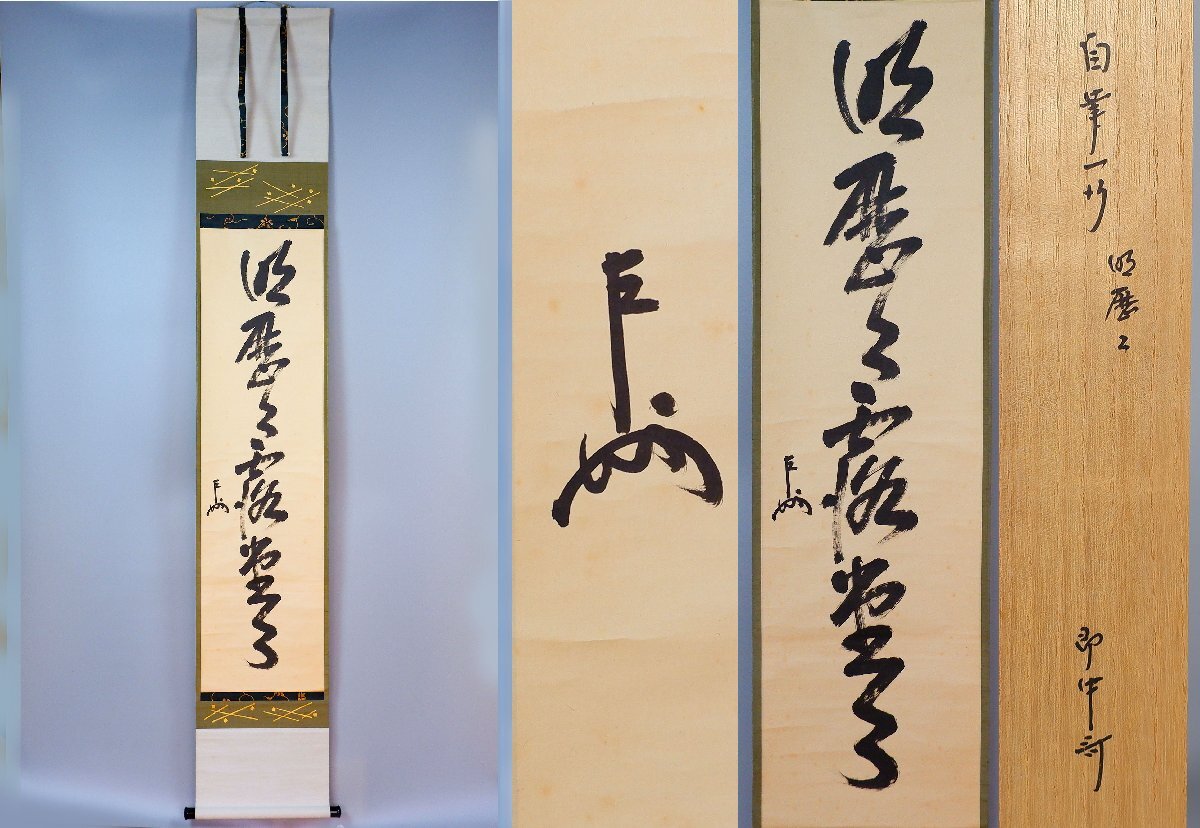 明歴々露堂々
明歴々露堂々
自筆一行
明歴々
即中斎